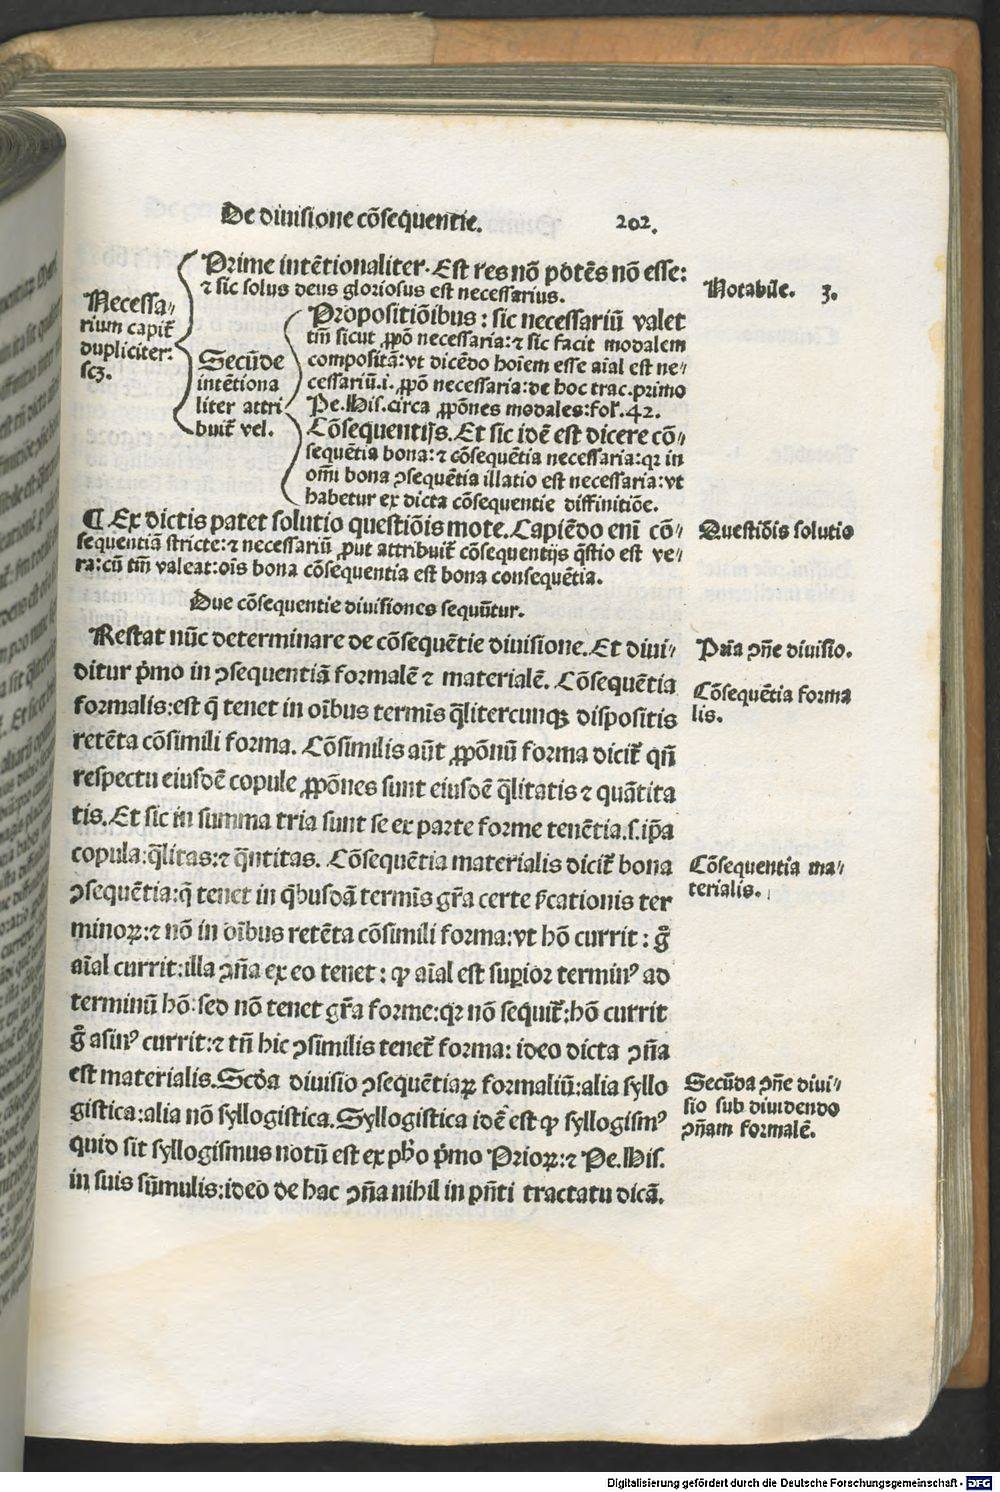 De diuisione cõsequentie. 202.
Prime intẽtionaliter. Est res nõ potẽs nõ esse:
⁊ sic solus deus gloriosus est necessarius.
Notabile. 3.
Necessa⸗
rium capit̃
dupliciter:
scꝫ.
Secũde
intẽtiona
liter attri
buit̃ vel.
Propositiõibus: sic necessariũ valet
tm̃ sicut ꝓpõ necessaria: ⁊ sic facit modalem
compositã: vt dicẽdo hoĩem esse aĩal est ne⸗
cessariũ .i. ꝓpõ necessaria: de hoc trac. primo
Pe. His. circa ꝓpões modales: fol̃. 42.
Cõsequentijs. Et sic idẽ est dicere cõ⸗
sequẽtia bona: ⁊ cõsequẽtia necessaria: qꝛ in
om̃i bona ꝯsequẽtia illatio est necessaria: vt
habetur ex dicta cõsequentie diffinitiõe.
¶ Ex dictis patet solutio questiõis mote. Capiẽdo eni᷑ cõ⸗
sequentiã stricte: ⁊ necessariũ ꝓut attribuit̃ cõsequentijs q̃stio est ve⸗
ra: cũ tm̃ valeat: oĩs bona cõsequentia est bona consequẽtia.
Questiõis solutio
Due cõsequentie diuisiones sequũtur.
Restat nũc determinare de cõsequẽtie diuisione. Et diui⸗
ditur p̃mo in ꝯsequentiã formalẽ ⁊ materialẽ. Cõsequẽtia
formalis: est q̃ tenet in oĩbus termĩs q̃litercunqꝫ dispositis
retẽta cõsimili forma. Cõsimilis aũt ꝓpõnũ forma dicit̃ qñ
respectu eiusdẽ copule ꝓpões sunt eiusdẽ q̃litatis ⁊ quãtita
tis. Et sic in summa tria sunt se ex parte forme tenẽtia. s. ip̃a
copula: q̃litas: ⁊ q̃ntitas. Cõsequẽtia materialis dicit̃ bona
ꝯsequẽtia: q̃ tenet in q̃busdã termĩs gr̃a certe s̃icationis ter
minoꝝ: ⁊ nõ in oĩbus retẽta cõsimili forma: vt hõ currit: g̊
aĩal currit: illa ꝯña ex eo tenet: ꝙ aĩal est suꝑior terminꝰ ad
terminũ hõ: sed nõ tenet gr̃a forme: qꝛ nõ sequit̃: hõ currit
g̊ asinꝰ currit: ⁊ tñ hic ꝯsimilis tenet̃ forma: ideo dicta ꝯña
est materialis. Scd̃a diuisio ꝯsequẽtiaꝝ formaliũ: alia syllo
gistica: alia nõ syllogistica. Syllogistica idẽ est ꝙ syllogismꝰ
quid sit syllogismus notũ est ex ph̃o p̃mo Prioꝝ: ⁊ Pe. His.
in suis sũmulis: ideo de hac ꝯña nihil in pñti tractatu dicã.
Pr̃ia ꝯñe diuisio.
Cõsequẽtia forma
lis.
Cõsequentia ma⸗
terialis.
Secũda ꝯñe diui⸗
sio sub diuidendo
ꝯñam formalẽ.
Digitalisierung gefördert durch die Deutsche Forschungsgemeinschaft - DFG